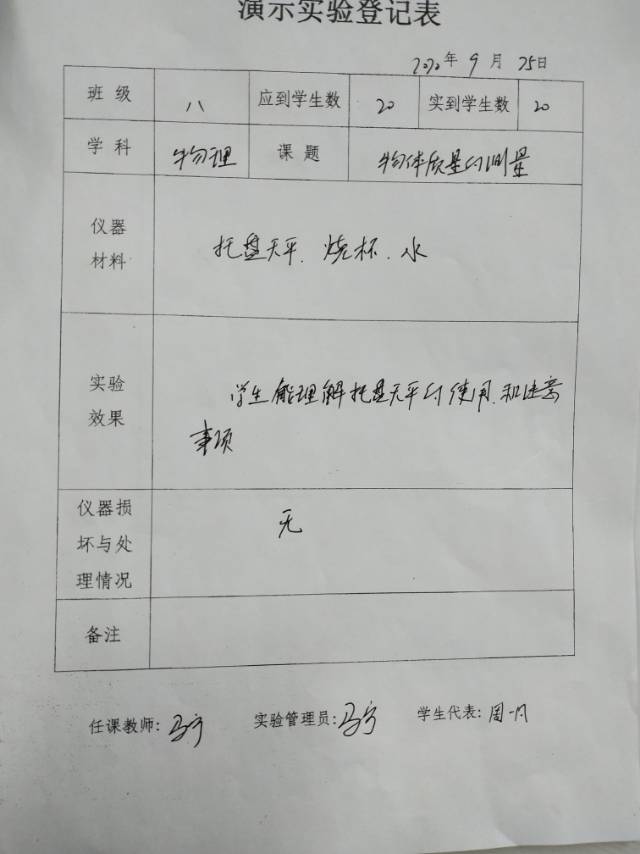 演示实验登记表
2020年 9 月 25日
班 级 八 应到学生数 20 实到学生数 20
学 科 物理 课 题 物体质量的测量
仪器
材料
托盘天平、烧杯、水
实验
效果
学生能理解托盘天平的使用和注意
事项
仪器损
坏与处
理情况
无
备注
任课教师: 马宁 实验管理员: 马宁 学生代表: 周一凡